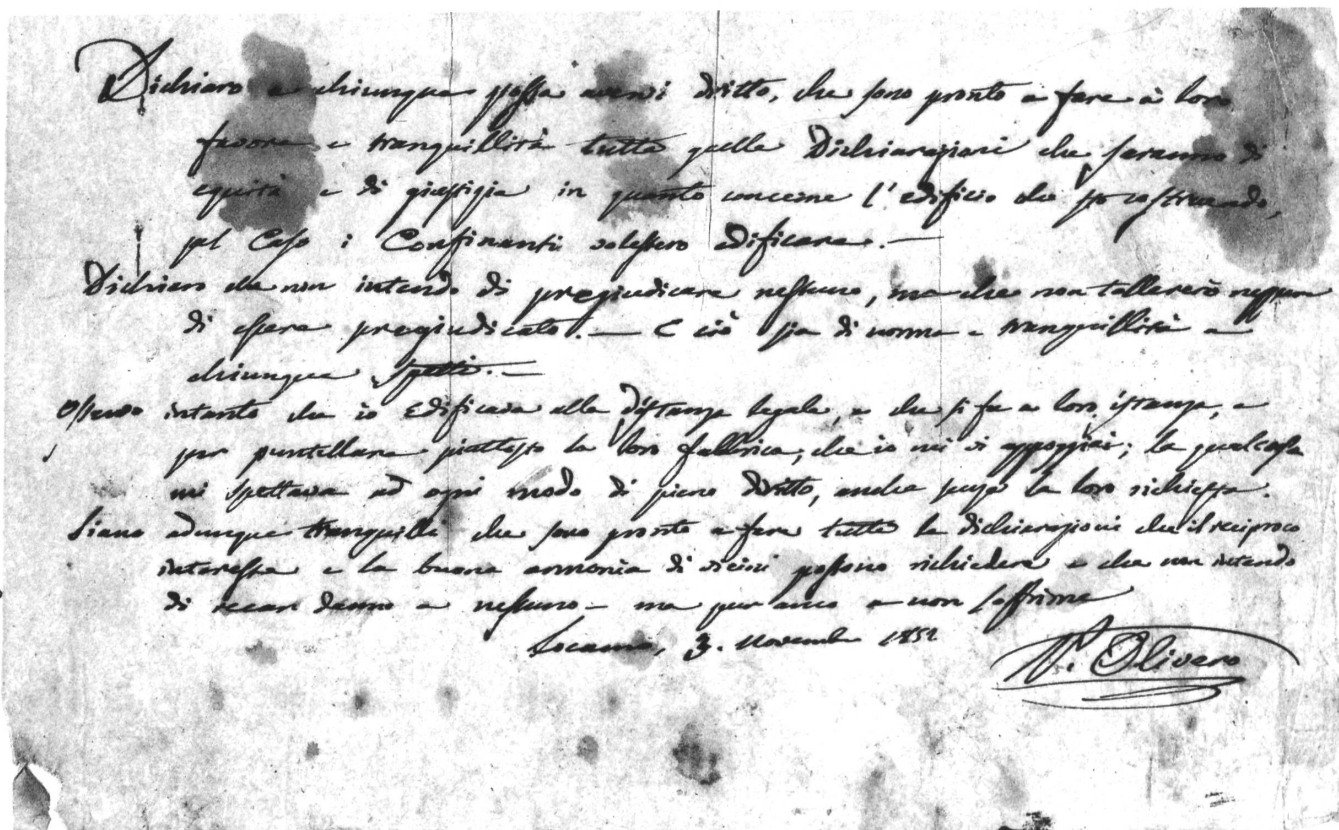 Dichiaro a chiunque possa avervi dritto, che sono pronto a fare a loro
favore e tranquillità tutte quelle Dichiarazioni che saranno di
equità e di giustizia in quanto concerne l'edificio che sto costruendo,
pel Caso i Confinanti volessero edificare. —
Dichiaro che non intendo di pregiudicare nessuno, ma che non tollererò neppure
di essere pregiudicato. — E ciò sia di norma e tranquillità a
chiunque spetti. —
Osservo intanto che io edificava alla distanza legale, e che si fu a loro istanza, e
per puntellare piuttosto la loro fabbrica, che io mi vi appoggiai; la qualcosa
mi spettava ad ogni modo di pieno diritto, anche senza la loro richiesta.
Siano adunque tranquilli che sono pronto a fare tutte le dichiarazioni che il reciproco
interesse e la buona armonia di vicini possono richiedere e che non intendo
di recar danno a nessuno — ma pur anco a non soffrirne
3. Novembre 1852
Olivero